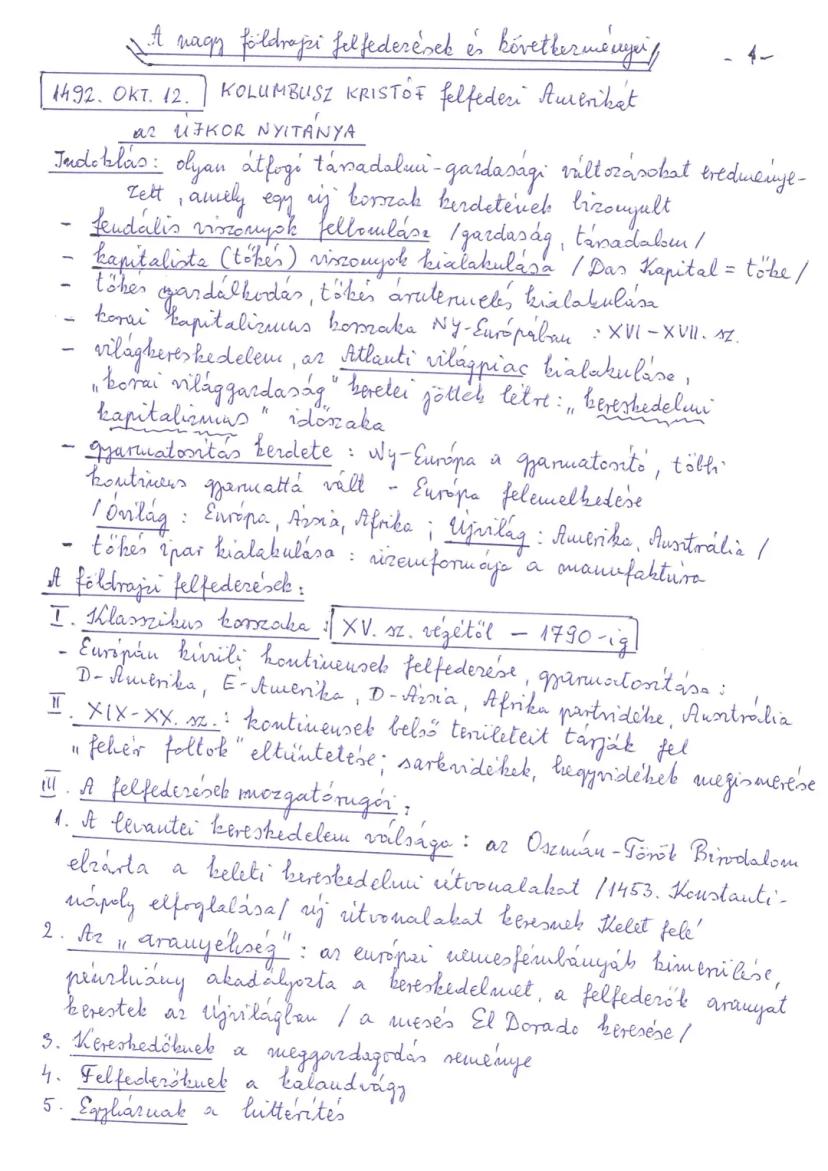 A nagy földrajzi felfedezések és következményei
- 1 -
1492. OKT. 12. KOLUMBUSZ KRISTÓF felfedezi Amerikát
az ÚJKOR NYITÁNYA
Indoklás: olyan átfogó társadalmi-gazdasági változásokat eredménye-
zett, amely egy új korszak kezdetének bizonyult
- feudális viszonyok felbomlása /gazdaság, társadalom/
- kapitalista (tőkés) viszonyok kialakulása /Das Kapital = tőke/
- tőkés gazdálkodás, tőkés árutermelés kialakulása
- korai kapitalizmus korszaka NY-Európában : XVI-XVII. sz.
- világkereskedelem, az Atlanti világpiac kialakulása,
„korai világgazdaság" keretei jöttek létre: „kereskedelmi
kapitalizmus" időszaka
- gyarmatosítás kezdete : Ny-Európa a gyarmatosító, többi
kontinens gyarmattá vált - Európa felemelkedése
/Óvilág : Európa, Ázsia, Afrika ; Újvilág : Amerika, Ausztrália/
- tőkés ipar kialakulása : üzemformája a manufaktúra
A földrajzi felfedezések:
I. Klasszikus korszaka : XV. sz. végétől - 1790-ig
- Európán kívüli kontinensek felfedezése, gyarmatosítása :
D-Amerika, É-Amerika, D-Ázsia, Afrika partvidéke, Ausztrália
II. XIX-XX. sz. : kontinensek belső területeit tárják fel
„fehér foltok" eltüntetése; sarkvidékek, hegyvidékek megismerése
III. A felfedezések mozgatórugói :
1. A levantei kereskedelem válsága : az Oszmán-Török Birodalom
elzárta a keleti kereskedelmi útvonalakat /1453. Konstanti-
nápoly elfoglalása/ új útvonalakat keresnek Kelet felé
2. Az „aranyéhség" : az európai nemesfémbányák kimerülése,
pénzhiány akadályozta a kereskedelmet, a felfedezők aranyat
kerestek az Újvilágban / a mesés El Dorado keresése/
3. Kereskedőknek a meggazdagodás reménye
4. Felfedezőknek a kalandvágy
5. Egyháznak a hittérítés